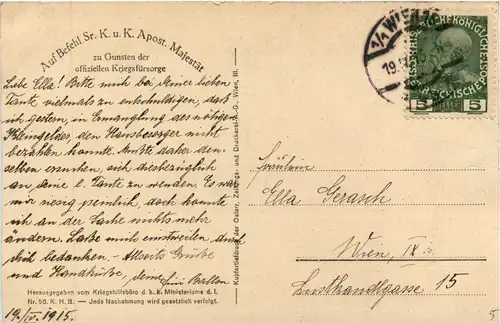 Auf Befehl Sr. K. u. K. Apost. Majestät
zu Gunsten der
offiziellen Kriegsfürsorge
Liebe Ella! Bitte mich bei Deiner lieben
Tante vielmals zu entschuldigen, daß
ich gestern, in Ermanglung des nötigen
Kleingeldes, den Hausbesorger nicht
bezahlen konnte. Mußte daher den-
selben ersuchen, sich diesbezüglich
an deine l. Tante zu wenden. Es war
mir riesig peinlich, doch konnte
ich an der Sache nichts mehr
ändern. Lasse mich einstweilen
dich bedanken. - Allseits Grüße
und Handküsse, deine
Herausgegeben vom Kriegshilfsbüro d. k. k. Ministeriums d. I.
Nr. 50. K. H. B. — Jede Nachahmung wird gesetzlich verfolgt.
19./IV. 1915.
Kupfertiefdruck der Oesterr. Zeitungs- und Druckerei-A.-G. Wien, III.
1/1 WIEN
19.
5 5
Fräulein
Ella Gerasch
Wien, IX
Lustkandlgasse 15
5